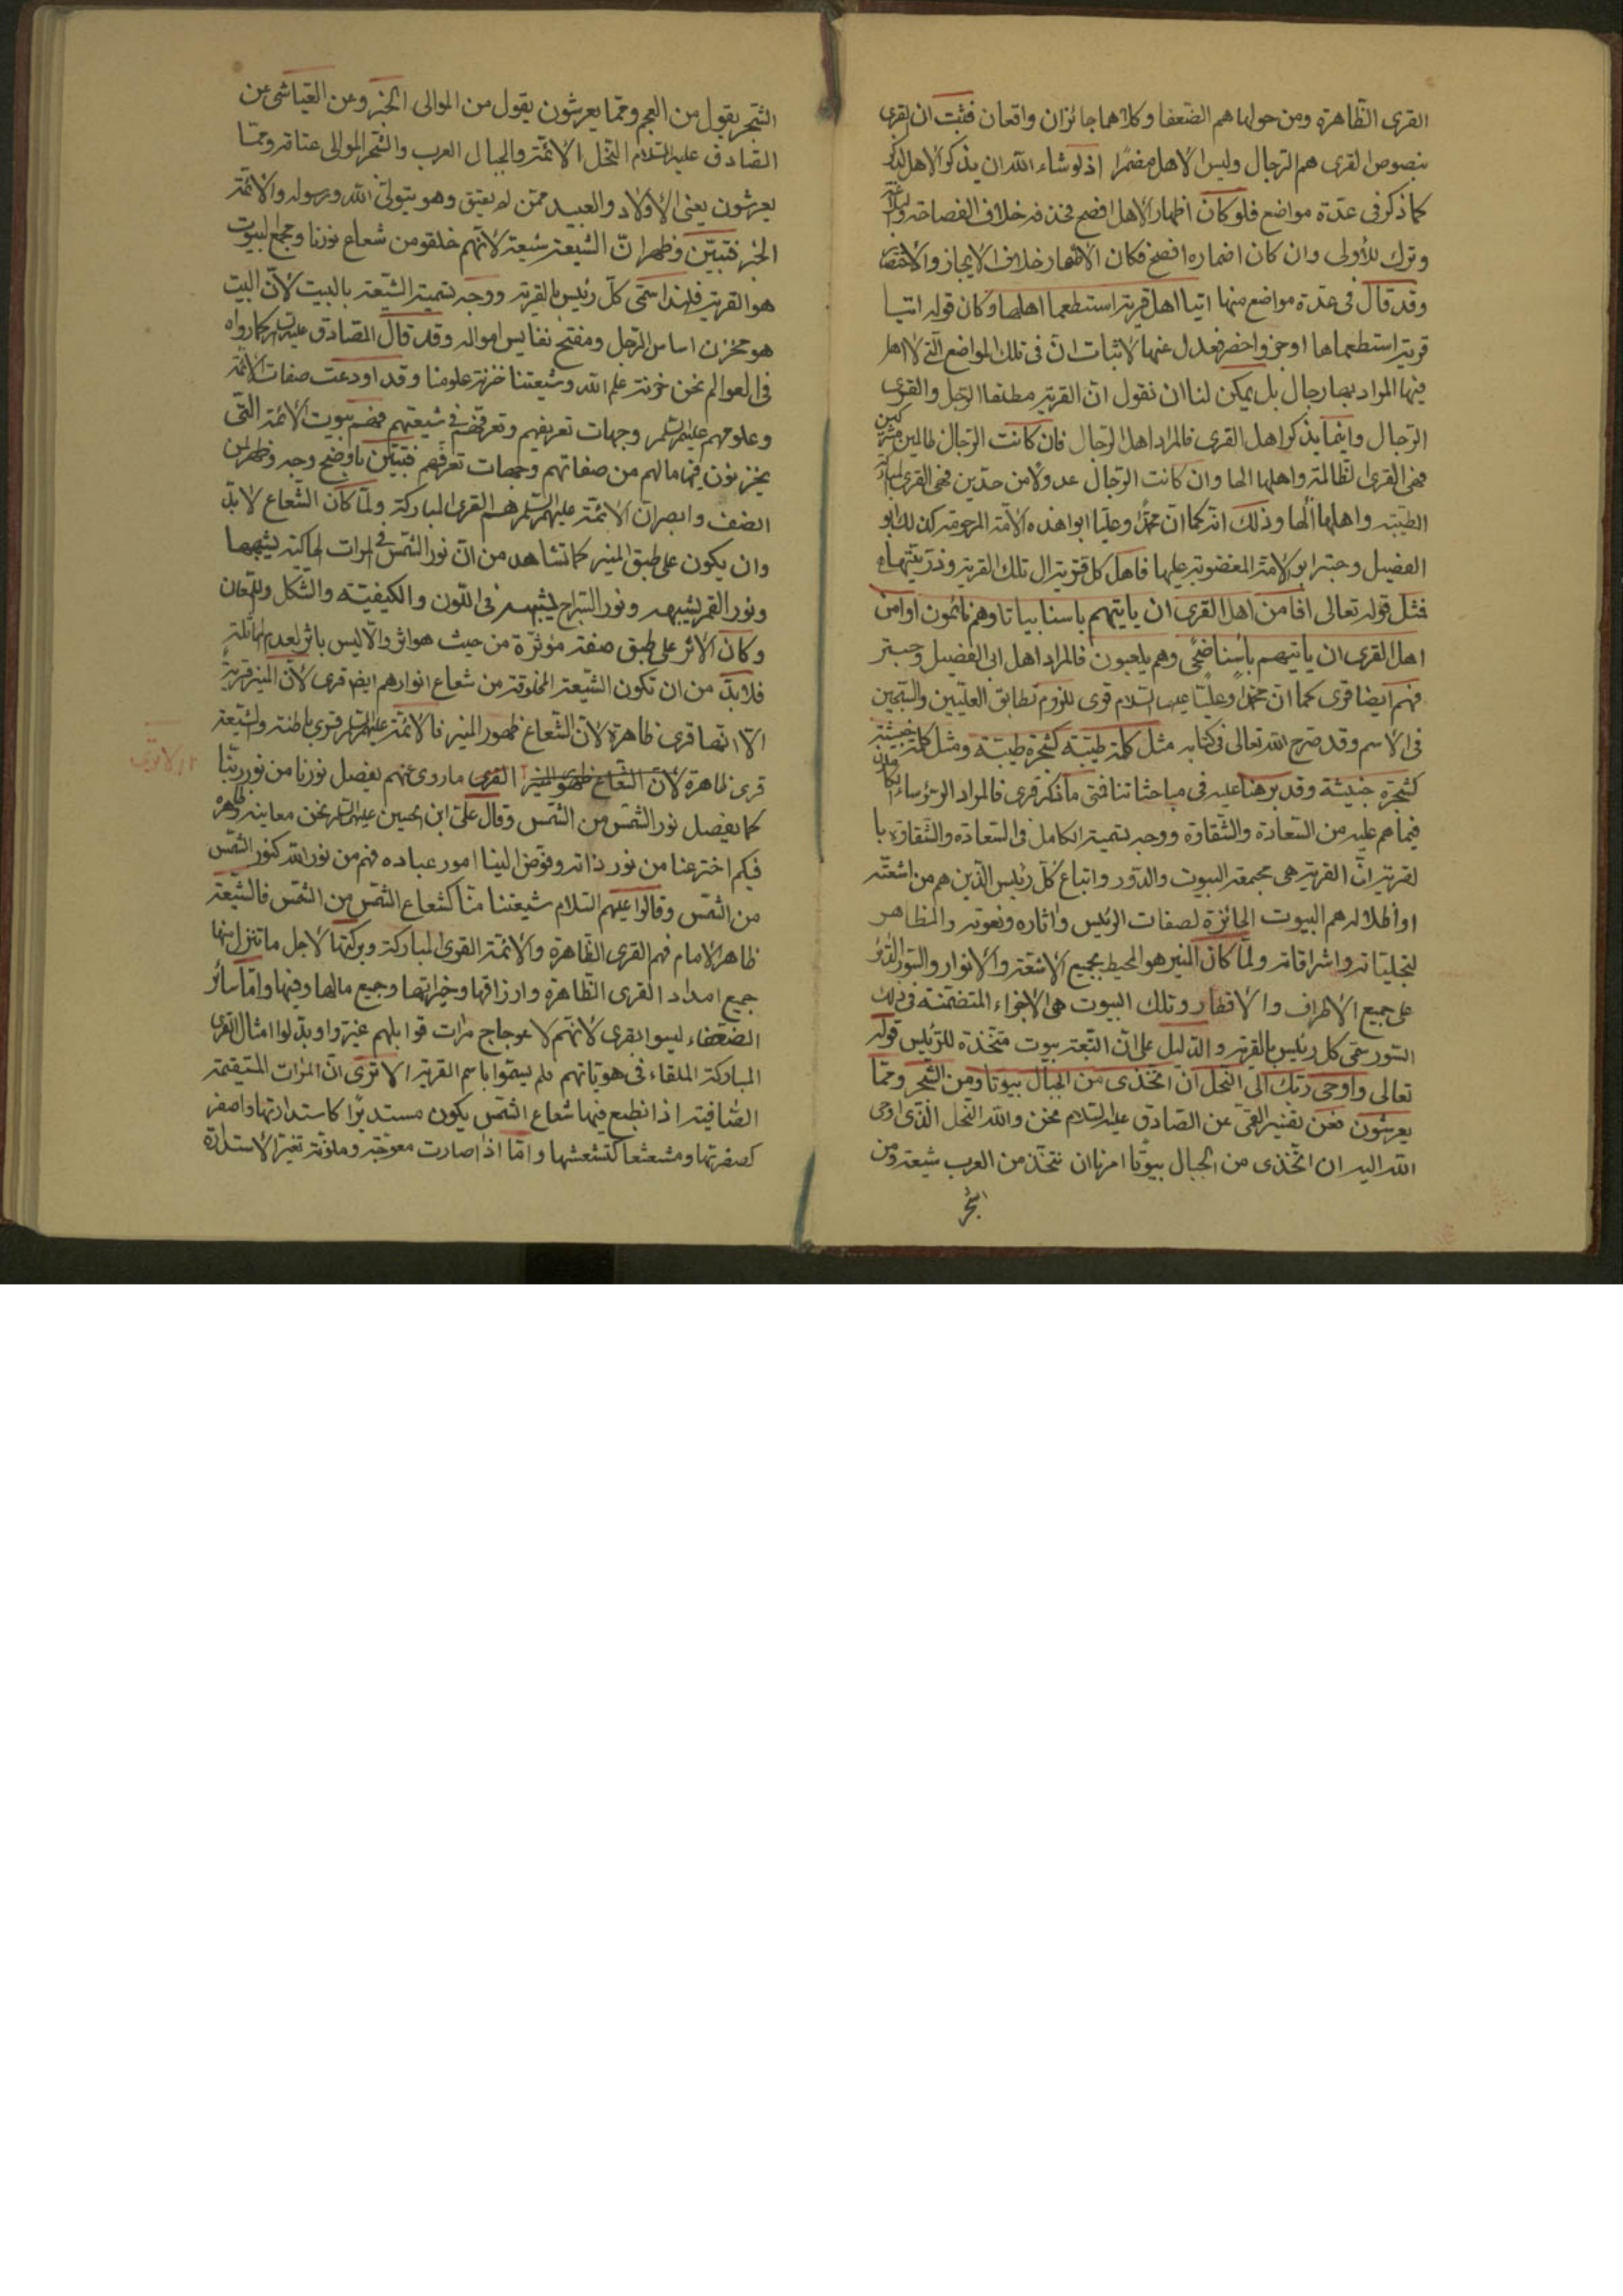 القرى الظاهرة ومن حولها هم الضعفا وكلاهما جائزان واقعان فثبت ان القرى
بنصوص القرى هم الرجال وليس الاهل مضمرا اذ لو شاء الله ان يذكر الاهل لذكر
كما ذكر فى عدة مواضع فلو كان اظهار الاهل افصح فحذفه خلاف الفصاحة
وترك للأولى وان كان اضماره افصح فكان الاظهار خلاف الايجاز والاختصار
وقد قال فى عدة مواضع منها اتيا اهل قرية استطعما اهلها وكان قوله اتيا
قرية استطعماها اوجز واخصر فعدل عنها لاثبات ان فى تلك المواضع التى لا اهل
فيها المراد بها رجال بل يمكن لنا ان نقول ان القرية مطلقا الرجل والقرى
الرجال وانما يذكر اهل القرى فالمراد اهل الرجال فان كانت الرجال ظالمين مشركين
فهى القرى الظالمة واهلها الها وان كانت الرجال عدولا من حدين فهى القرى المباركة
الطيبة واهلها الها وذلك انه كما ان محمدا وعليا ابوا هذه الامة المرحومة كذلك ابو
الفضيل وحبتر ابو الامة المغضوبة عليها فاهل كل قرية ال تلك القرية وذريتها
فمثل قوله تعالى افامن اهل القرى ان ياتيهم باسنا بياتا وهم نائمون اوامن
اهل القرى ان ياتيهم بأسنا ضحى وهم يلعبون فالمراد اهل ابى الفضيل وحبتر
فهم ايضا قرى كما ان محمدا وعليا عليهما السلام قرى للزوم تطابق العليين والسجين
فى الاسم وقد صرح الله تعالى فى كتابه مثل كلمة طيبة كشجرة طيبة ومثل كلمة خبيثة
كشجرة خبيثة وقد برهنا عليه فى مباحثاتنا فمتى ما ذكر قرى فالمراد الرؤساء الكاملون
فيما هم عليه من السعادة والشقاوة ووجه تسمية الكامل فى السعادة والشقاوة با
لقرية ان القرية هى مجمعة البيوت والدور واتباع كل رئيس الذين هم من اشعته
او أظلاله هم البيوت الحائزة لصفات الرئيس واثاره ونعوته والمظاهر
لتجلياته واشراقاته ولما كان المنير هو المحيط بجميع الاشعة والانوار والسور الدائر
على جميع الاطراف والاقطار وتلك البيوت هى الاجزاء المتضمنة فى ذلك
السور سمى كل رئيس بالقرية والدليل على ان التبعة بيوت متخذة للرئيس قوله
تعالى واوحى ربك الى النحل ان اتخذى من الجبال بيوتا ومن الشجر ومما
يعرشون فعن تفسير القمى عن الصادق عليه السلام نحن والله النحل الذى اوحى
الله اليه ان اتخذى من الجبال بيوتا امرنا ان نتخذ من العرب شيعة ومن
الشجر
الشجر يقول من العجم ومما يعرشون يقول من الموالى الخبر وعن العياشى عن
الصادق عليه السلام النحل الائمة والجبال العرب والشجر الموالى عتاقة ومما
يعرشون يعنى الاولاد والعبيد ممن لم يعتق وهو يتولى الله ورسوله والائمة
الخبر فتبين وظهر ان الشيعة شيعة لانهم خلقو من شعاع نورنا ومجمع البيوت
هو القرية فلهذا سمى كل رئيس بالقرية ووجه تسمية الشيعة بالبيت لان البيت
هو مخزن اساس الرجل ومفتح نفايس امواله وقد قال الصادق عليه السلم كما رواه
فى العوالم نحن خزنة علم الله وشيعتنا خزنة علومنا وقد اودعت صفات الائمة
وعلومهم عليهم السلم وجهات تعريفهم وتعرفهم فى شيعتهم فهم بيوت الائمة التى
يخزنون فيها ما لهم من صفاتهم وجهات تعرفهم فتبين باوضح وجه وظهر لمن
انصف وابصر ان الائمة عليهم السلم هم القرى المباركة ولما كان الشعاع لابد
وان يكون على طبق المنير كما تشاهد من ان نور الشمس فى المرات الحاكية يشبهها
ونور القمر يشبهه ونور السراج يشبهه فى اللون والكيفية والشكل واللمعان
وكان الاثر على طبق صفة مؤثرة من حيث هو اثر والا ليس باثر لعدم المماثلة
فلابد من ان تكون الشيعة المخلوقة من شعاع انوارهم ايضا قرى لان المنير قرية
الا انها قرى ظاهرة لان الشعاع ظهور المنير فالائمة عليهم السلم قرى باطنة والشيعة
قرى ظاهرة لان الشعاع ظهور المنير القرى ما روى عنهم يفصل نورنا من نور ربنا
كما يفصل نور الشمس من الشمس وقال على ابن الحسين عليهما السلم نحن معانيه وظاهره
فيكم اخترعنا من نور ذاته وفوض الينا امور عباده فهم من نور الله كنور الشمس
من الشمس وقالوا عليهم السلام شيعتنا منا كشعاع الشمس من الشمس فالشيعة
ظاهر الامام فهم القرى الظاهرة والائمة القرى المباركة وبركتها لاجل ما تنزل منها
جميع امداد القرى الظاهرة وارزاقها وخيراتها وجميع مالها وفيها واما سائر
الضعفاء ليسوا بقرى لانهم لاعوجاج مرات قوابلهم غيروا وبدلوا امثال القرى
المباركة الملقاء فى هوياتهم فلم يسموا باسم القرية الا ترى ان المرات المستقيمة
الصافية اذا انطبع فيها شعاع الشمس يكون مستديرا كاستدارتها واصفر
كصفرتها ومشعشعا كتشعشعها واما اذا صارت معوجة وملونة تغير الاستدارة